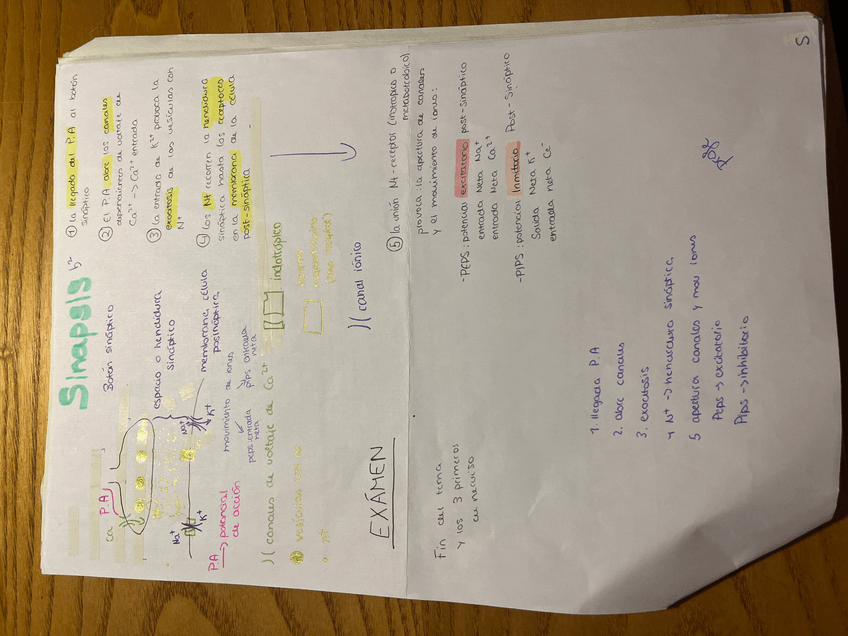 Sinapsis
Ca P.A
Botón sináptico
espacio o hendidura
sináptico
membrana célula
posináptica
Na+
K+
Na+
K+
P.A → potencial
de acción
movimiento de iones
peps entrada
neta
pips entrada
neta
)( canales de voltaje de Ca2+
indotrópico
)( canal iónico
① la llegada del P.A al botón
sináptico
② El P.A abre los canales
dependientes de voltaje de
Ca2+ → Ca2+ entrada
③ la entrada de K+ provoca la
exocitosis de las vesículas con
N+
④ los Nt recorren la hendidura
sináptica hasta los receptores
en la membrana de la célula
post-sináptica
EXÁMEN
Fin del tema
y los 3 primeros
⑤ la unión Nt - receptor (inotrópico o
metabotrópico)
provoca la apertura de canales
y el movimiento de iones:
- PEPS: potencial excitatorio post-sináptico
entrada Neta Na+
entrada Neta Ca2+
- PIPS: potencial Inhitorio Post-Sináptico
Salida Neta K+
entrada neta Ce-
1. llegada P.A
2. abre canales
3. exocitosis
4 N+ → hendidura sináptica
5 apertura canales y mov iones
Peps → excitatorio
Pips → inhibitorio
5